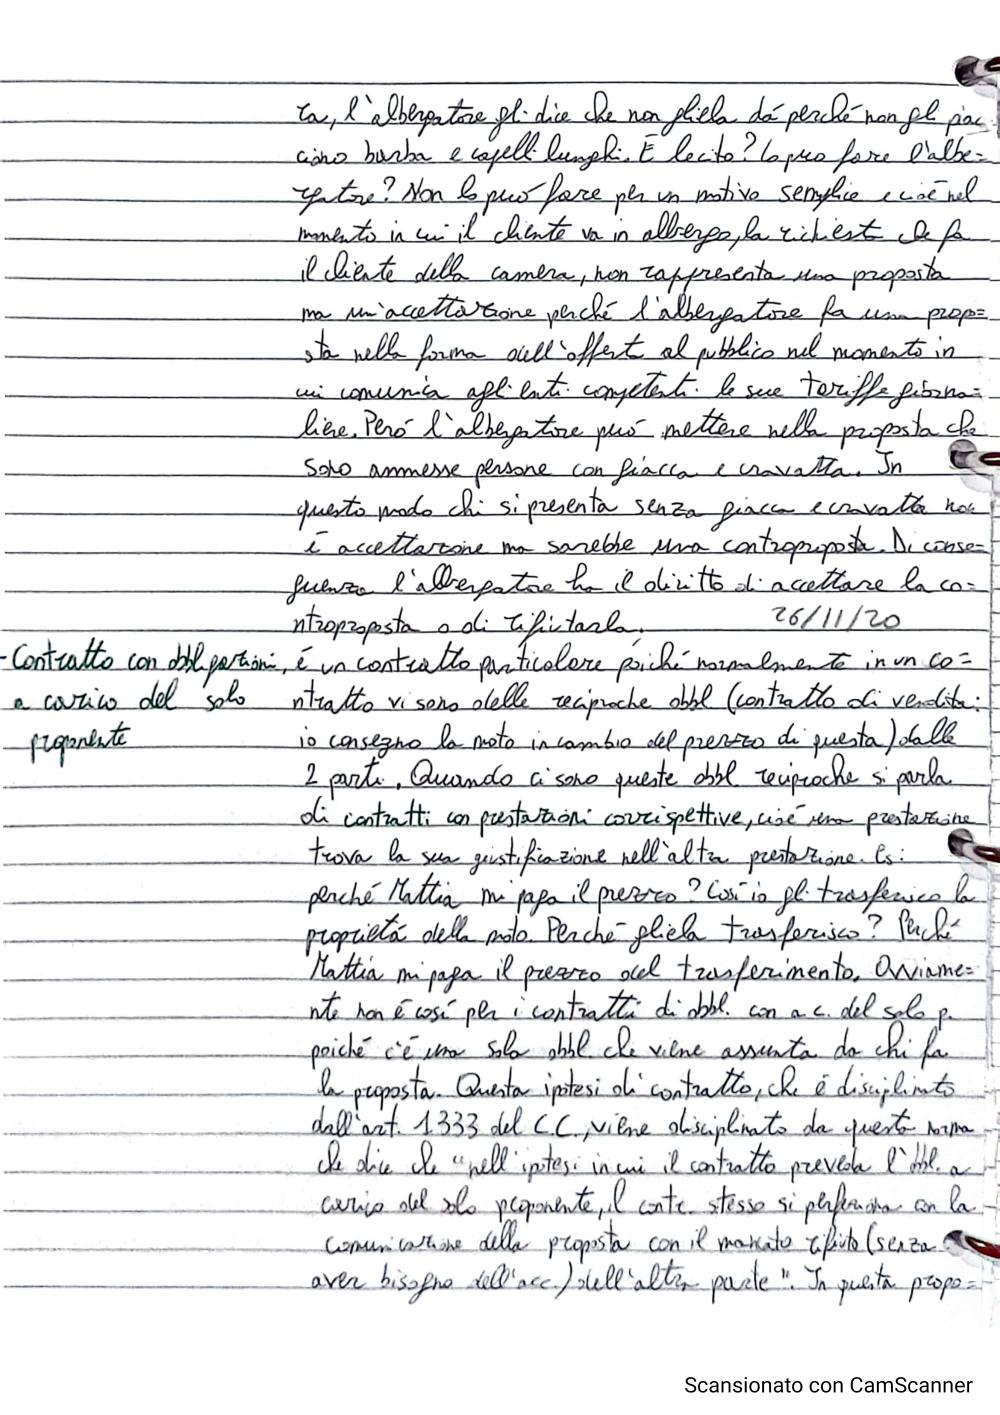 ra, l'albergatore gli dice che non gliela dá perché non gli piac
ciono barba e capelli lunghi. É lecito? Lo puo fare l'albe=
rgatore? Non lo puó fare per un motivo semplice e cioé nel
momento in cui il cliente va in albergo, la richiesta che fa
il cliente della camera, non rappresenta una proposta
ma un'accettazione perché l'albergatore fa una propo=
sta nella forma dell'offerta al pubblico nel momento in
cui comunica agli enti competenti le sue tariffe giorna=
liere. Peró l'albergatore puó mettere nella proposta che
sono ammesse persone con giacca e cravatta. In
questo modo chi si presenta senza giacca e cravatta non
é accettazione ma sarebbe una controproposta. Di conse=
guenza l'albergatore ha il diritto di accettare la co=
ntroproposta o di rifiutarla. 26/11/20
-Contratto con obbligazioni, é un contratto particolare poiché normalmente in un co=
a carico del solo ntratto vi sono delle reciproche obbl (contratto di vendita:
proponente io consegno la moto in cambio del prezzo di questa) dalle
2 parti. Quando ci sono queste obbl reciproche si parla
di contratti con prestazioni corrispettive, cioé una prestazione
trova la sua giustificazione nell'altra prestazione. Es:
perché Mattia mi paga il prezzo? Cosí io gli trasferisco la
proprietá della moto. Perché gliela trasferisco? Perché
Mattia mi paga il prezzo del trasferimento. Ovviame=
nte non é cosí per i contratti di obbl. con a c. del solo p.
poiché c'é una sola obbl che viene assunta da chi fa
la proposta. Questa ipotesi di contratto, che é disciplinato
dall'art. 1.333 del C.C., viene disciplinato da questa norma
che dice che "nell'ipotesi in cui il contratto preveda l'obbl. a
carico del solo proponente, il contr. stesso si perfeziona con la
comunicazione della proposta con il mancato rifiuto (senza
aver bisogno dell'acc.) dell'altra parte". In questa propo=
Scansionato con CamScanner